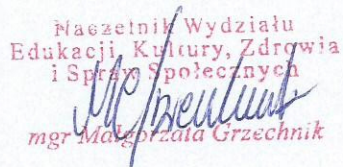 Naczelnik Wydziału
Edukacji, Kultury, Zdrowia
i Spraw Społecznych
mgr Małgorzata Grzechnik